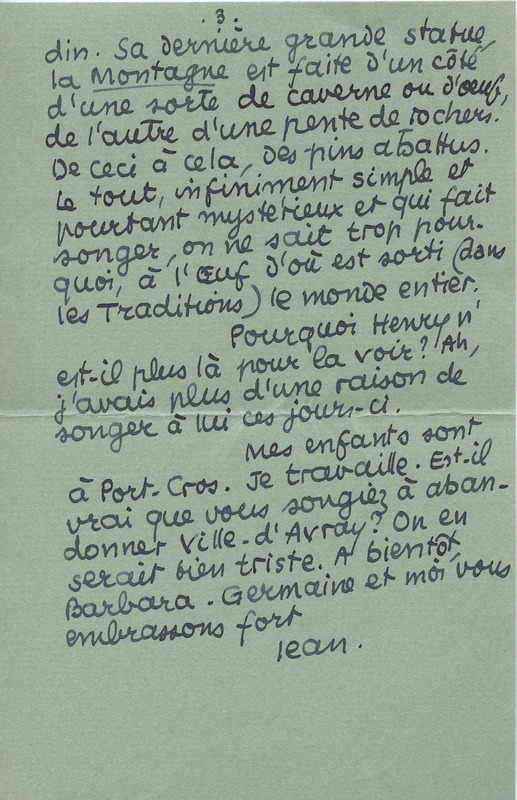 . 3 .
din. Sa dernière grande statue,
la Montagne est faite d'un côté
d'une sorte de caverne ou d'œuf,
de l'autre d'une pente de rochers.
De ceci à cela, des pins abattus.
Le tout, infiniment simple et
pourtant mystérieux et qui fait
songer, on ne sait trop pour-
quoi, à l'Œuf d'où est sorti (dans
les Traditions) le monde entier.
Pourquoi Henry n'
est-il plus là pour la voir? Ah,
j'avais plus d'une raison de
songer à lui ces jours-ci.
Mes enfants sont
à Port-Cros. Je travaille. Est-il
vrai que vous songiez à aban-
donner Ville-d'Avray? On en
serait bien triste. A bientôt,
Barbara. Germaine et moi vous
embrassons fort
Jean.